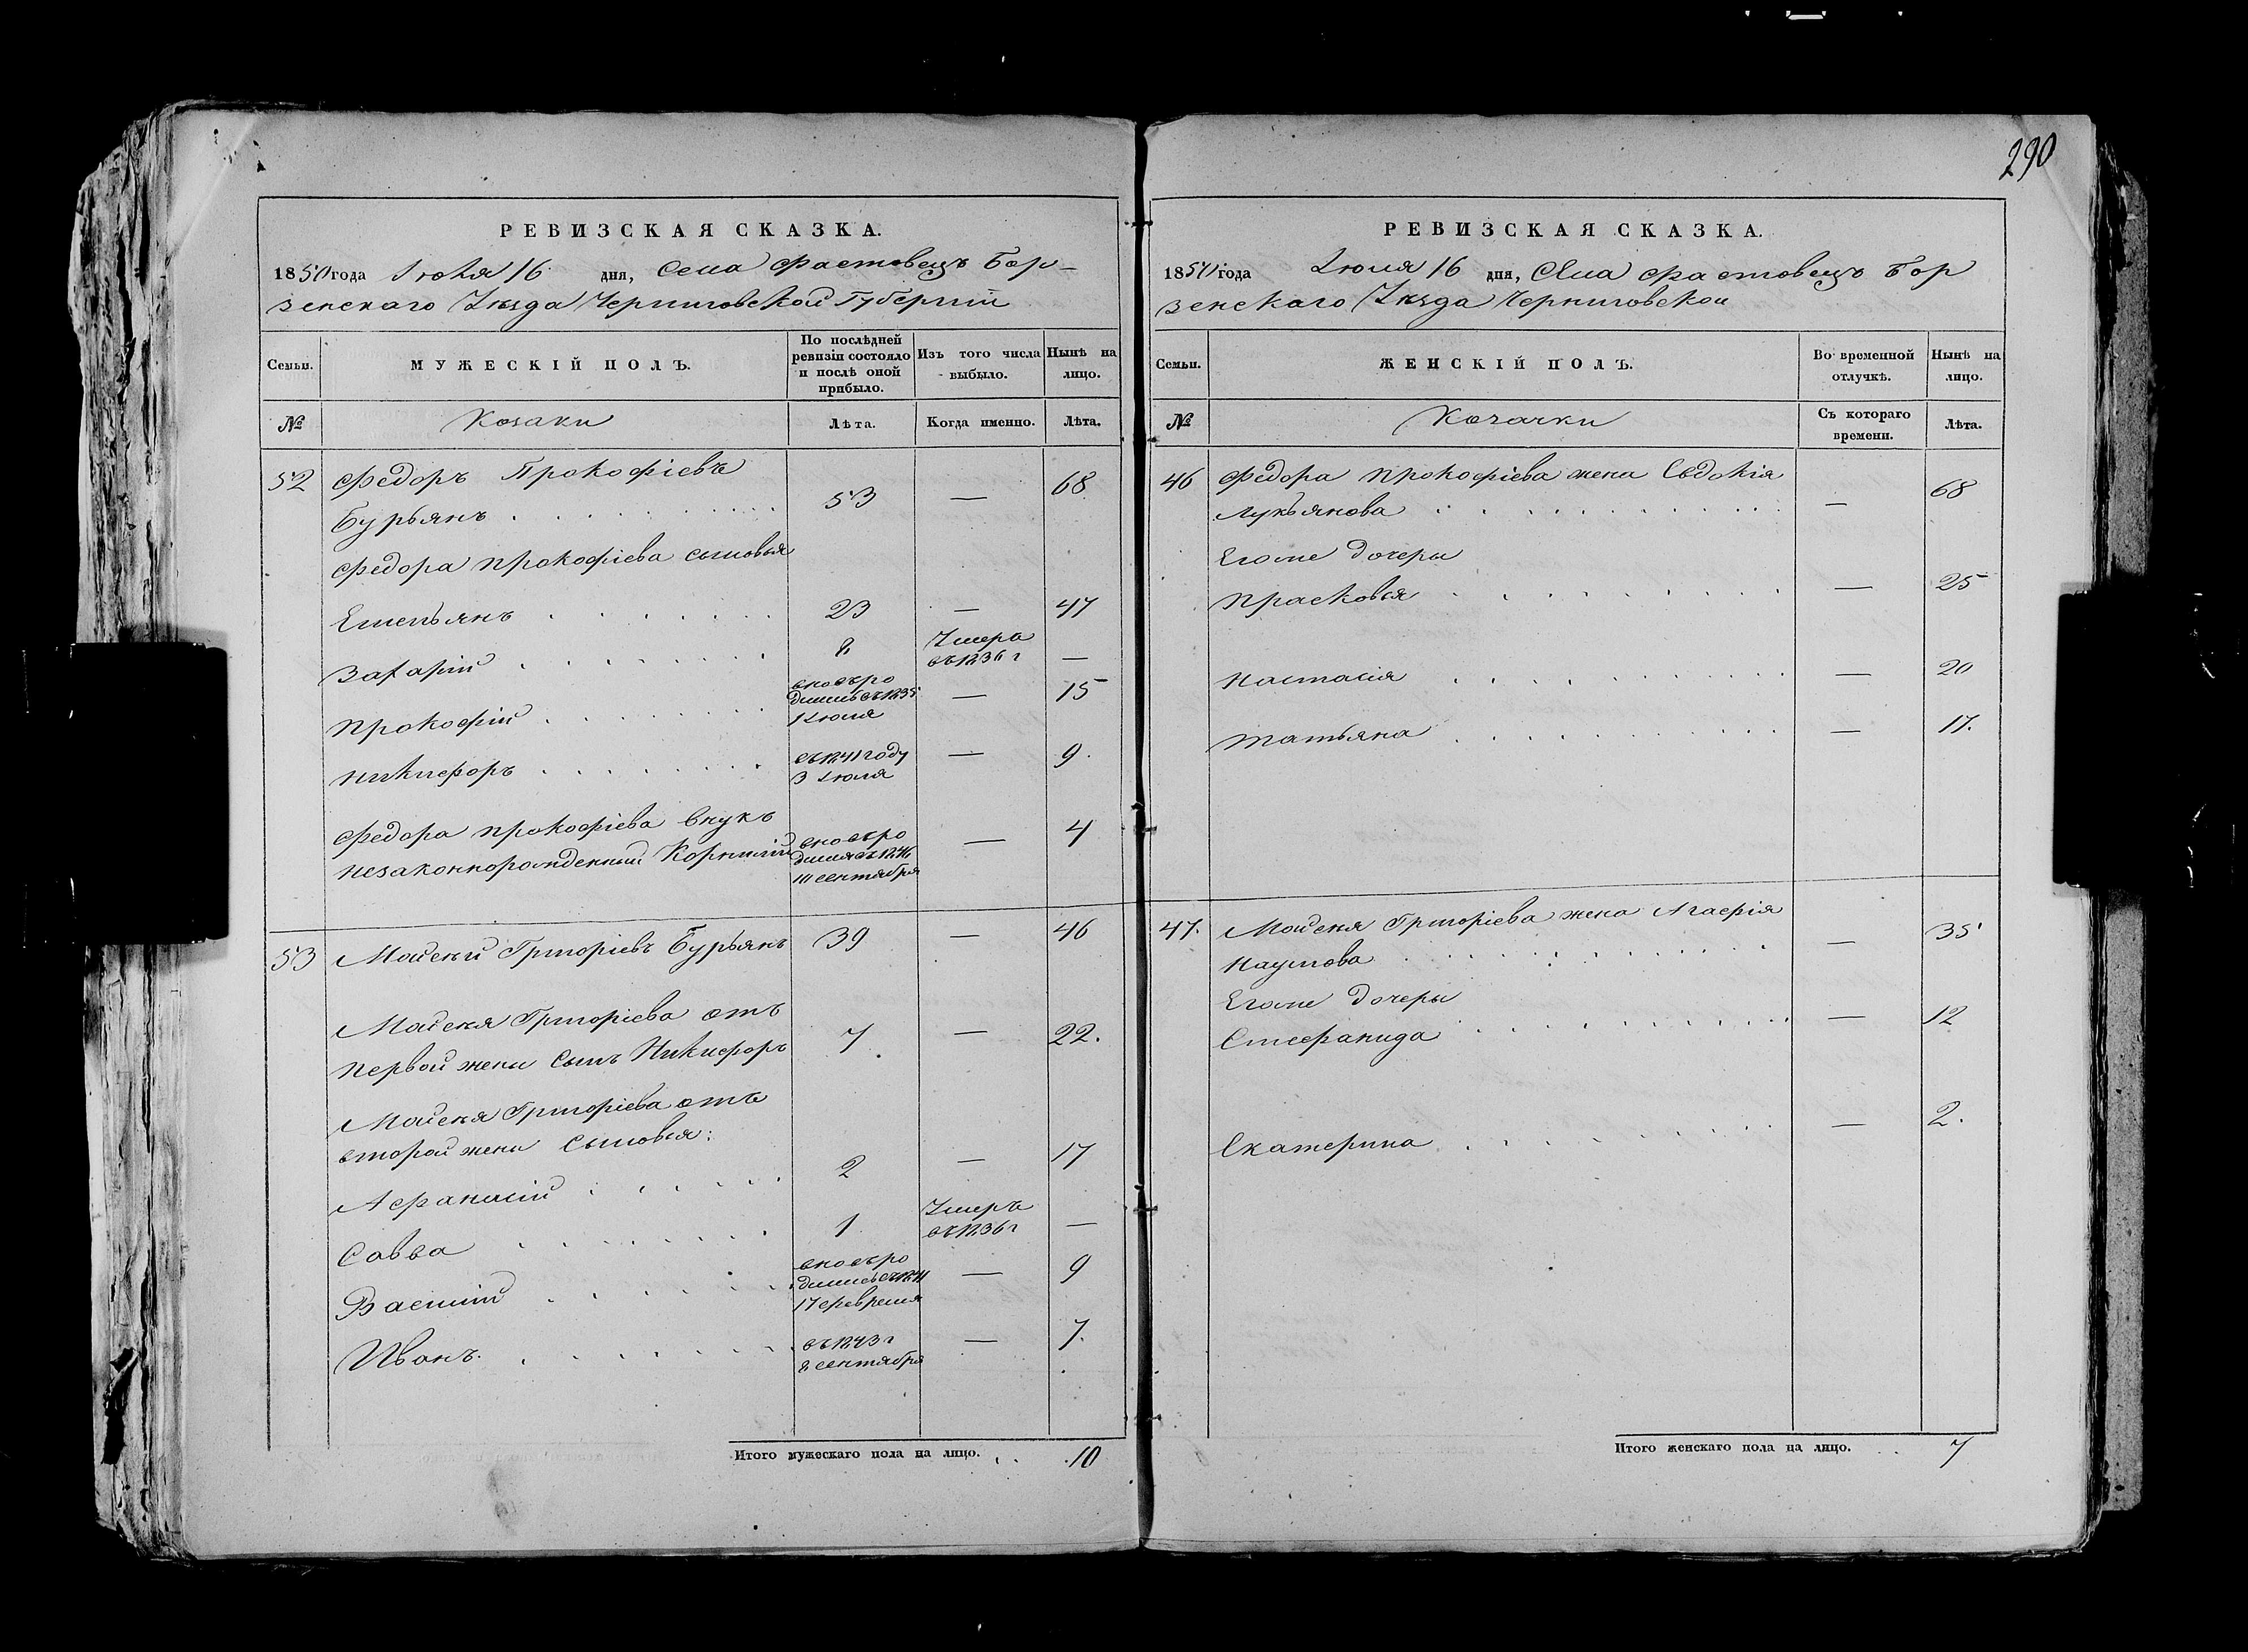 290
РЕВИЗСКАЯ СКАЗКА.
1850 года Іюля 16 дня, Села Фастовецъ Бор-
зенскаго Уѣзда Черниговской Губерніи
Семьи.
МУЖЕСКІЙ ПОЛЪ.
По послѣдней ревизіи состояло и послѣ оной прибыло.
Изъ того числа выбыло.
Нынѣ на лицо.
№ Козаки Лѣта. Когда именно. Лѣта.
52 Федоръ Прокофіевъ
Бурьянъ . . . . 53 — 68
Федора Прокофіева сыновья
Емельянъ . . . . 23 — 47
Захарій . . . . 8 Умеръ въ 1836 г —
Прокофій . . . . вновь ро дились въ 1835 1 Іюля — 15
Никифоръ . . . . въ 1841 году 3 Іюля — 9.
Федора Прокофіева внукъ
незаконнорожденный Корнилій вновь ро дился въ 1846 сентября — 4
53 Мойсей Григоріевъ Бурьянъ 39 — 46
Мойсея Григоріева отъ
первой жены сынъ Никифоръ 7 — 22.
Мойсея Григоріева отъ
второй жены сыновья:
Афанасій . . . . 2 — 17
Савва . . . . 1 Умеръ въ 1836 г —
Василій . . . . вновь ро дились въ 1841 17 февраля — 9
Иванъ. . . . . въ 1843 г 8 сентября — 7.
Итого мужескаго пола на лицо. . . 10
РЕВИЗСКАЯ СКАЗКА.
1850 года Іюля 16 дня, Села Фастовецъ Бор
зенскаго Уѣзда Черниговской
Семьи.
ЖЕНСКІЙ ПОЛЪ.
Во временной отлучкѣ.
Нынѣ на лицо.
№ Козачки Съ котораго времени. Лѣта.
46 Федора Прокофіева жена Евдокія
Лукьянова . . . . — 68
Егоже дочери
Прасковья . . . . — 25
Настасія . . . . — 20
Татьяна . . . . — 17.
47. Мойсея Григоріева жена Агафія
Наумова . . . . — 35
Егоже дочери
Стефанида . . . . — 12
Екатерина . . . . — 2.
Итого женскаго пола на лицо. . . 7